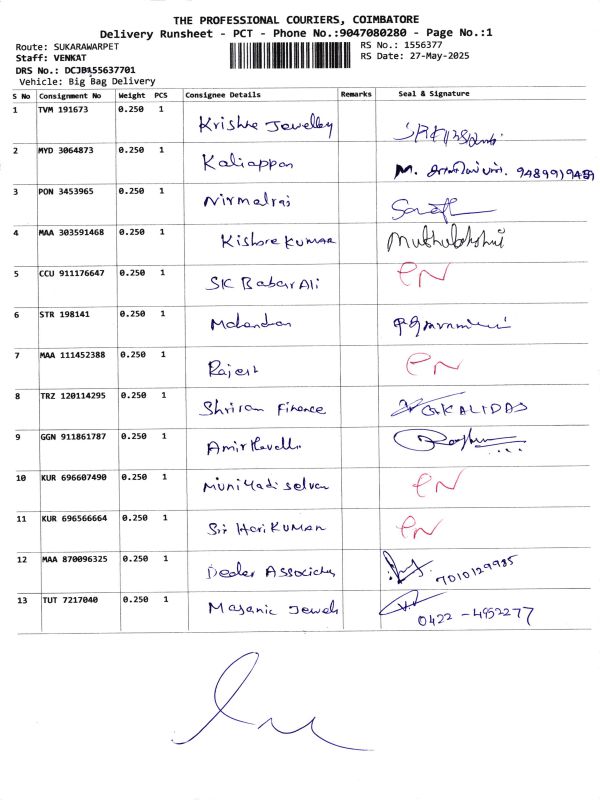 THE PROFESSIONAL COURIERS, COIMBATORE
Delivery Runsheet - PCT - Phone No.:9047080280 - Page No.:1
Route: SUKARAWARPET RS No.: 1556377
Staff: VENKAT RS Date: 27-May-2025
DRS No.: DCJB155637701
Vehicle: Big Bag Delivery
S No Consignment No Weight PCS Consignee Details Remarks Seal & Signature
1 TVM 191673 0.250 1 Krishna Jewelley
2 MYD 3064873 0.250 1 Kaliappan M. 9489919489
3 PON 3453965 0.250 1 Nirmalraj
4 MAA 303591468 0.250 1 Kishore KUMAR Muthulakshmi
5 CCU 911176647 0.250 1 SK Babar Ali EN
6 STR 198141 0.250 1
7 MAA 111452388 0.250 1 Rajesh EN
8 TRZ 120114295 0.250 1 Shriram Finance GKALIDAS
9 GGN 911861787 0.250 1
10 KUR 696607490 0.250 1 EN
11 KUR 696566664 0.250 1 Sri Hari KUMAR EN
12 MAA 870096325 0.250 1 7010129985
13 TUT 7217040 0.250 1 0422 - 4952277